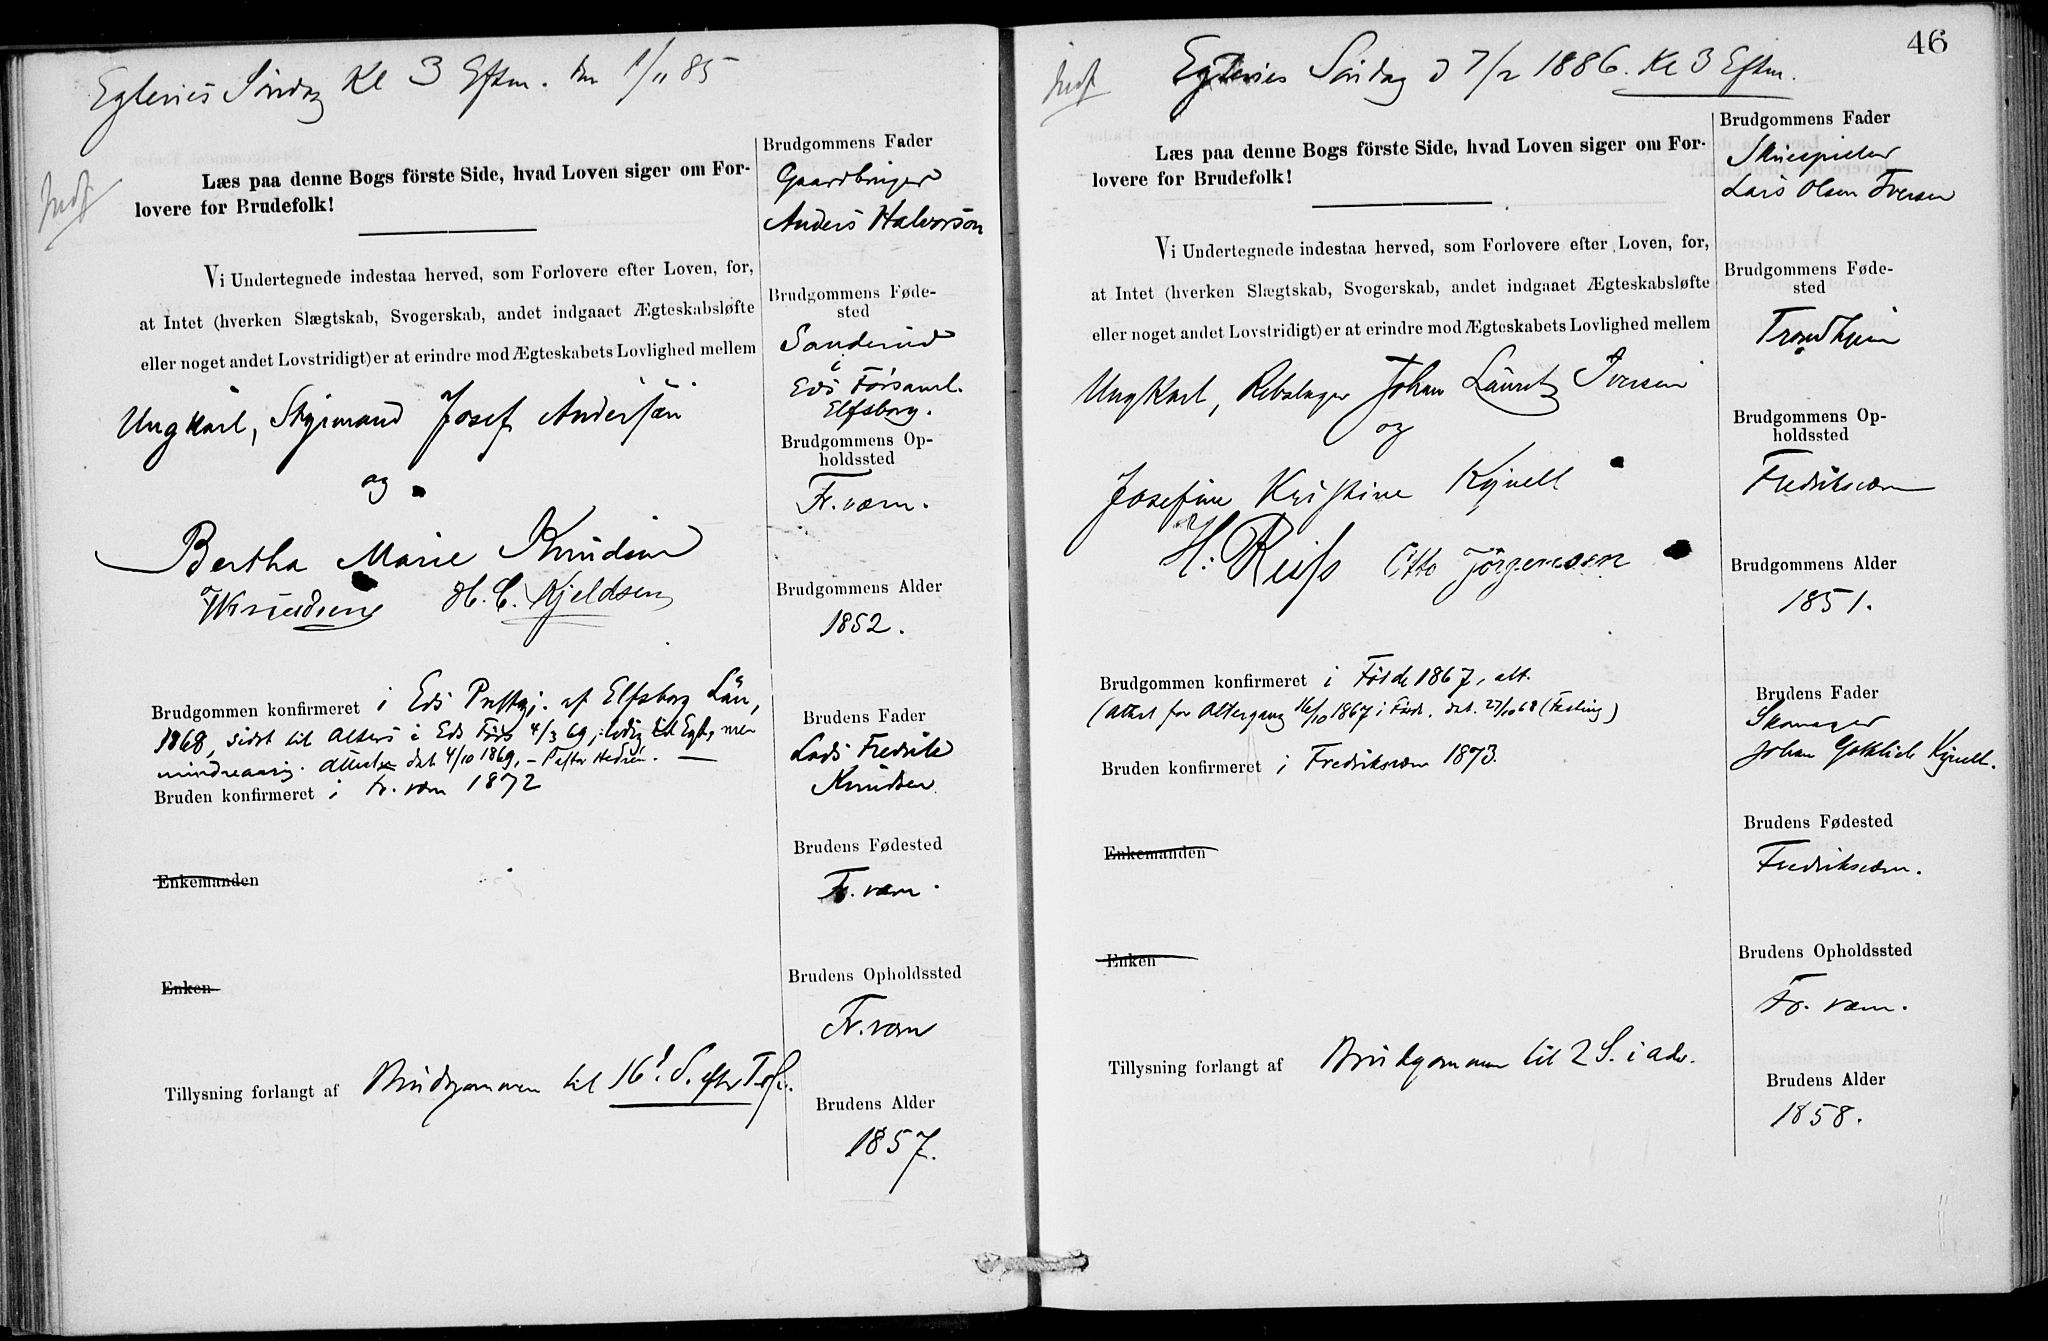 Egtevies Søndag Kl 3 Eftm. den 1/11 85
Indf
Læs paa denne Bogs förste Side, hvad Loven siger om For-
lovere for Brudefolk!
Vi Undertegnede indestaa herved, som Forlovere efter Loven, for,
at Intet (hverken Slægtskab, Svogerskab, andet indgaaet Ægteskabsløfte
eller noget andet Lovstridigt) er at erindre mod Ægteskabets Lovlighed mellem
Ungkarl, Styrmand Josef Andersson
og
Bertha Marie Knudsen
Knudsen H. C. Kjeldsen
Brudgommen konfirmeret i Eds Pastgj. af Elfsborg Län,
1868, sidst til Alters i Eds Förs 4/3 69, ledig til Egt., men
mindreaarig. Attest dat 4/10 1869, – Pastor Hedrén. —
Bruden konfirmeret i Fr. værn 1872
Enkemanden
Enken
Tillysning forlangt af Brudgommen til 16d. S. efter Tref.
Brudgommens Fader
Gaardbruger
Anders Halvorson
Brudgommens Føde-
sted
Sanderud
i
Eds Församl.
Elfsborg.
Brudgommens Op-
holdssted
Fr. værn.
Brudgommens Alder
1852.
Brudens Fader
Lods Fredrik
Knudsen
Brudens Fødested
Fr. værn.
Brudens Opholdssted
Fr. værn
Brudens Alder
1857.
46
Indf
Egtevies Søndag d 7/2 1886. Kl 3 Eftm.
Læs paa denne Bogs förste Side, hvad Loven siger om For-
lovere for Brudefolk!
Vi Undertegnede indestaa herved, som Forlovere efter Loven, for,
at Intet (hverken Slægtskab, Svogerskab, andet indgaaet Ægteskabsløfte
eller noget andet Lovstridigt) er at erindre mod Ægteskabets Lovlighed mellem
Ungkarl, Rebslager Johan Lauritz Iversen
og
Josefine Kristine Kynell
H. Reiss Otto Jörgensen
Brudgommen konfirmeret i Förde 1867, att.
(Attest for Altergang 16/10 1867 i Förde, dat. 27/10 68 (Fasting)
Bruden konfirmeret i Fredriksværn 1873.
Enkemanden
Enken
Tillysning forlangt af Brudgommen til 2 S. i adv.
Brudgommens Fader
Skuespiller
Lars Olsen Iversen
Brudgommens Føde-
sted
Trondhjem
Brudgommens Op-
holdssted
Fredriksværn
Brudgommens Alder
1851.
Brudens Fader
Skomager
Johan Gottlieb Kynell.
Brudens Fødested
Fredriksværn.
Brudens Opholdssted
Fr. værn.
Brudens Alder
1858.